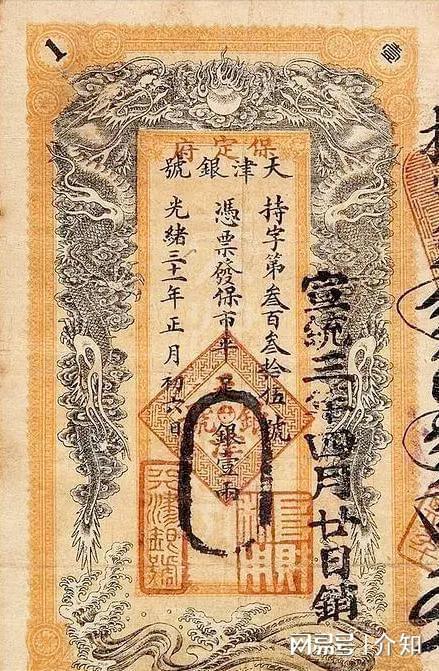 1
壹
保定府
天津銀號
持字第叁百叁拾伍號
憑票發保市平足銀壹兩
光緒三十一年正月初六日
宣統三年四月廿日銷
天津銀號
网易号 | 介知